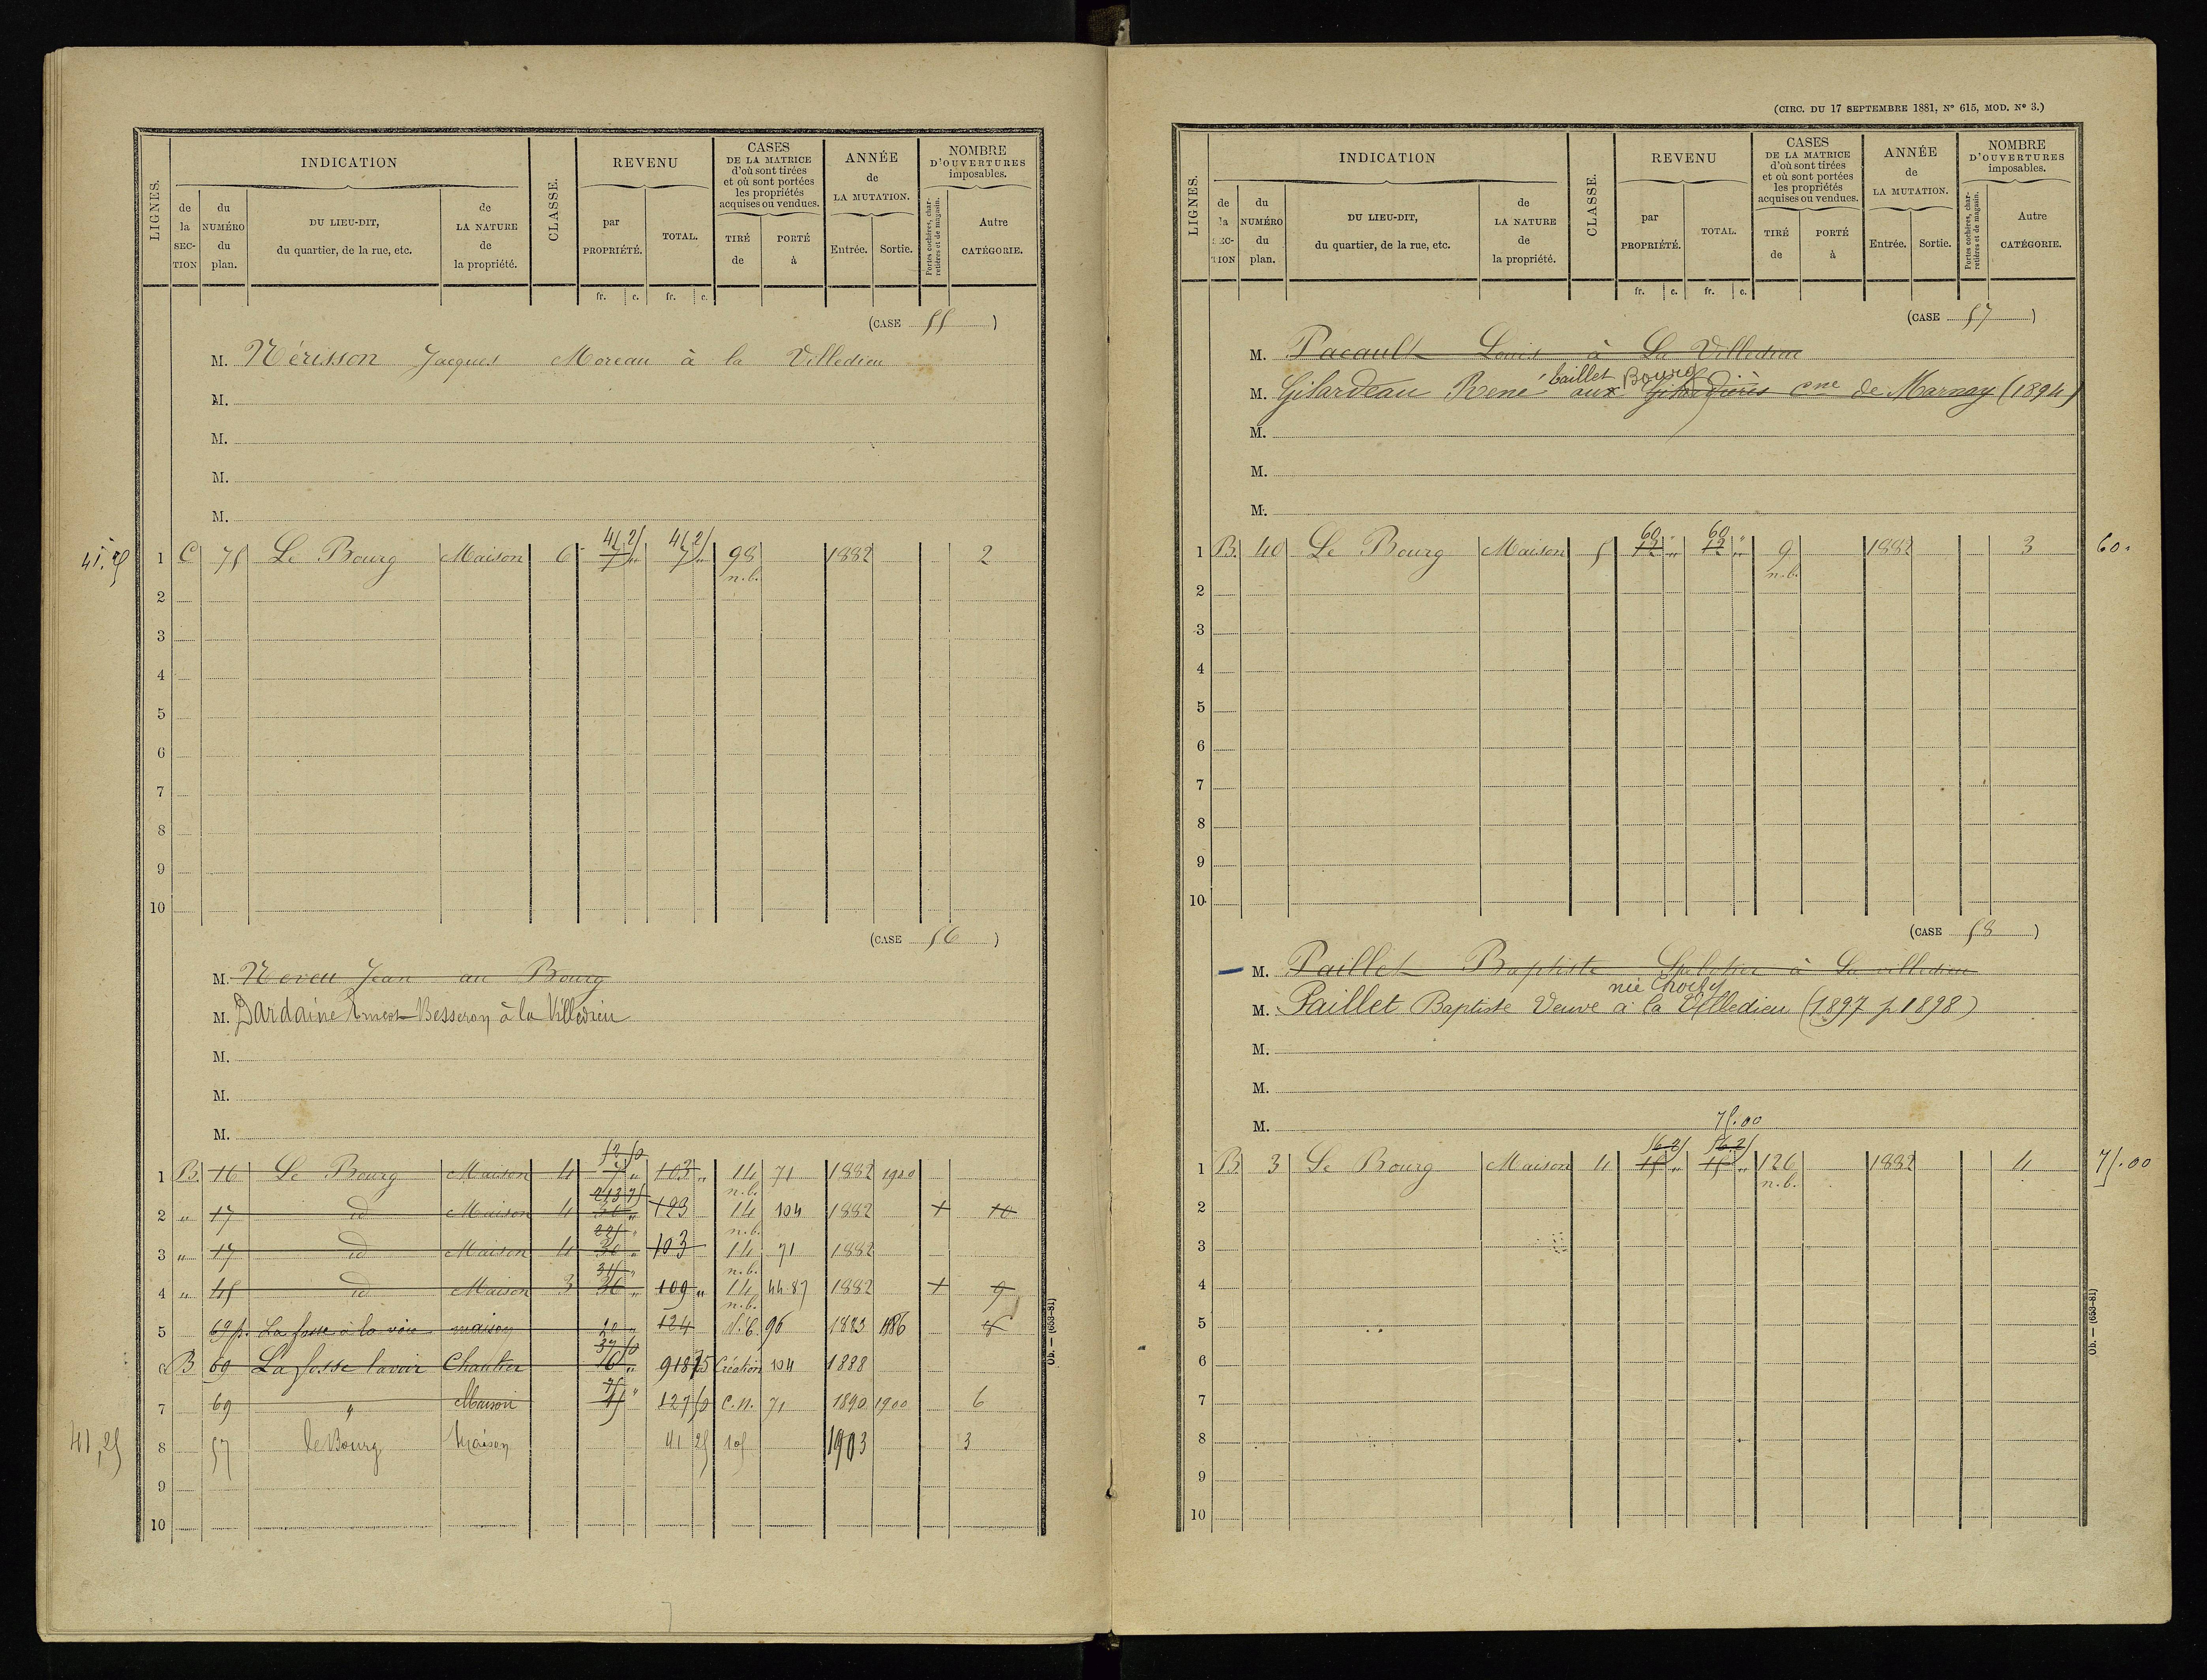 LIGNES.
INDICATION
CLASSE.
REVENU
CASES DE LA MATRICE d'où sont tirées et où sont portées les propriétés acquises ou vendues.
ANNÉE de LA MUTATION.
NOMBRE D'OUVERTURES imposables.
de la SECTION
du NUMÉRO du plan.
DU LIEU-DIT, du quartier, de la rue, etc.
de LA NATURE de la propriété.
par PROPRIÉTÉ.
TOTAL.
TIRÉ de
PORTÉ à
Entrée.
Sortie.
Portes cochères, charretières et de magasin.
Autre CATÉGORIE.
fr. c. fr. c.
(CASE 55)
M. Nérisson Jacques Moreau à la Villedieu
M.
M.
M.
M.
41 25 41 25
41.25 1 C 75 Le Bourg Maison 6 7 " 7 " 98 1882 2
n.b.
2
3
4
5
6
7
8
9
10
(CASE 56)
M. Neveu Jean au Bourg
M. Dardaine Besseron à la Villedieu
M.
M.
M.
52 50
1 B. 16 Le Bourg Maison 4 7 " 103 " 14 71 1882 1900
n.b.
213 75
2 " 17 id Maison 4 30 " 123 14 104 1882 + 10
n.b.
225 "
3 " 17 id Maison 4 30 " 103 14 71 1882
n.b.
315 "
4 " 45 id Maison 3 36 " 109 " 14 44 87 1882 + 9
n.b.
5 69 p. La fosse à la voie maison 124 N.C. 96 1883 1886
37 50
6 B 69 La fosse lavoir Chantier 16 " 918 75 Création 104 1888
75 "
7 69 " Maison 45 127 50 C.N. 71 1890 1900 6
41,25 8 57 le Bourg Maison 41 25 105 1903 3
9
10
Ob. — (653-81)
(CIRC. DU 17 SEPTEMBRE 1881, N° 615, MOD. N° 3.)
LIGNES.
INDICATION
CLASSE.
REVENU
CASES DE LA MATRICE d'où sont tirées et où sont portées les propriétés acquises ou vendues.
ANNÉE de LA MUTATION.
NOMBRE D'OUVERTURES imposables.
de la SECTION
du NUMÉRO du plan.
DU LIEU-DIT, du quartier, de la rue, etc.
de LA NATURE de la propriété.
par PROPRIÉTÉ.
TOTAL.
TIRÉ de
PORTÉ à
Entrée.
Sortie.
Portes cochères, charretières et de magasin.
Autre CATÉGORIE.
fr. c. fr. c.
(CASE 57)
M. Pacault Louis à La Villedieu
baillet Bourg
M. Gilardeau René aux cne de Marnay (1894)
M.
M.
M.
60 " 60 "
1 B. 40 Le Bourg Maison 5 12 " 12 " 9 1882 3 60 "
n.b.
2
3
4
5
6
7
8
9
10
(CASE 58)
M. Paillet Baptiste Sabotier à La villedieu
née
M. Paillet Baptiste Veuve à la Villedieu (1897 p 1898)
M.
M.
M.
75.00
56 25 56 25
1 B 3 Le Bourg Maison 4 15 " 15 " 126 1882 4 75.00
n.b.
2
3
4
5
6
7
8
9
10
Ob. — (653-81)